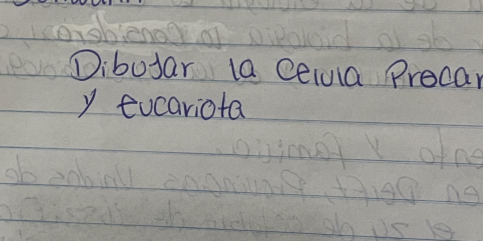 Dibujar la celula Procar
y eucariota